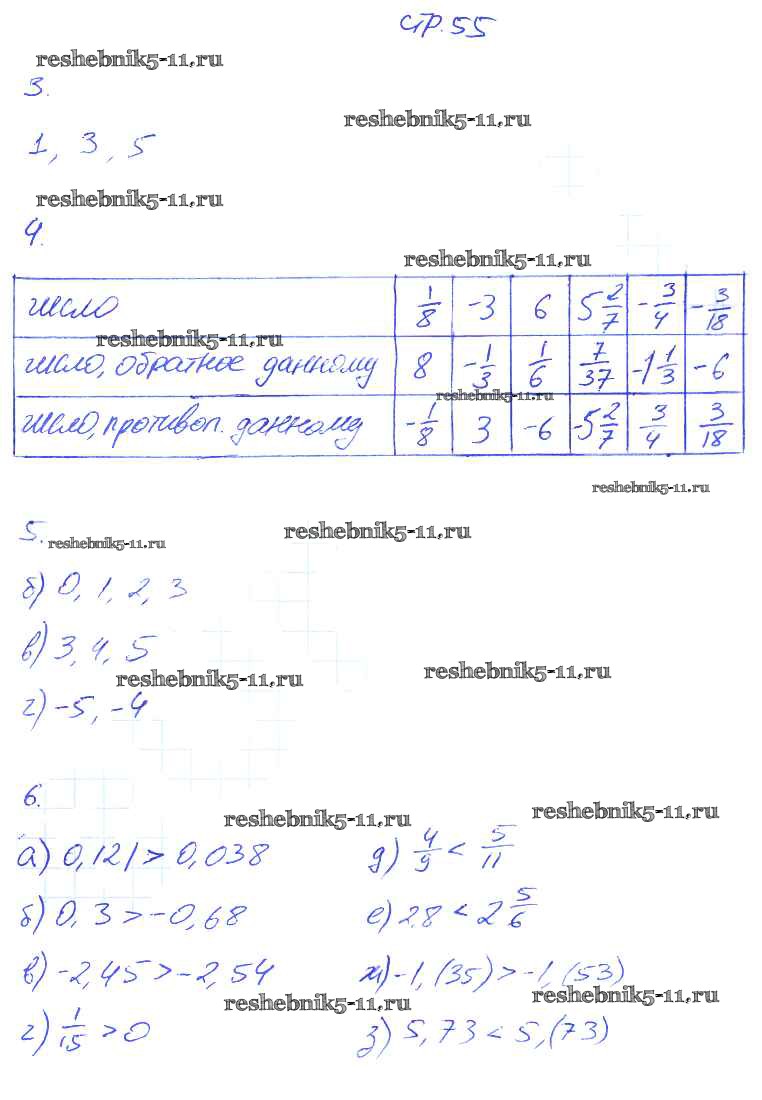 стр. 55
reshebnik5-11.ru
3.
reshebnik5-11.ru
1, 3, 5
reshebnik5-11.ru
4.
reshebnik5-11.ru
число 1/8 -3 6 5 2/7 -3/4 -3/18
reshebnik5-11.ru
число, обратное данному 8 -1/3 1/6 7/37 -1 1/3 -6
reshebnik5-11.ru
число, противоп. данному -1/8 3 -6 -5 2/7 3/4 3/18
reshebnik5-11.ru
5. reshebnik5-11.ru reshebnik5-11.ru
б) 0, 1, 2, 3
в) 3, 4, 5
reshebnik5-11.ru reshebnik5-11.ru
г) -5, -4
6.
reshebnik5-11.ru reshebnik5-11.ru
а) 0,121 > 0,038 д) 4/9 < 5/11
б) 0,3 > -0,68 е) 2,8 < 2 5/6
в) -2,45 > -2,54 ж) -1,(35) > -1,(53)
reshebnik5-11.ru reshebnik5-11.ru
г) 1/15 > 0 з) 5,73 < 5,(73)